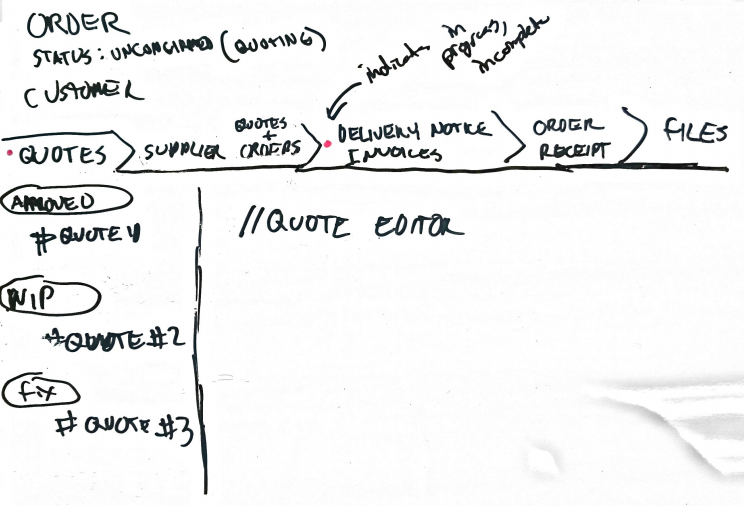 ORDER
STATUS: UNCONFIRMED (QUOTING)
CUSTOMER
indicates in progress, incomplete
• QUOTES
SUPPLIER QUOTES + ORDERS
• DELIVERY NOTICE
INVOICES
ORDER
RECEIPT
FILES
APPROVED
# QUOTE
WIP
# QUOTE #2
FIX
# QUOTE #3
//QUOTE EDITOR